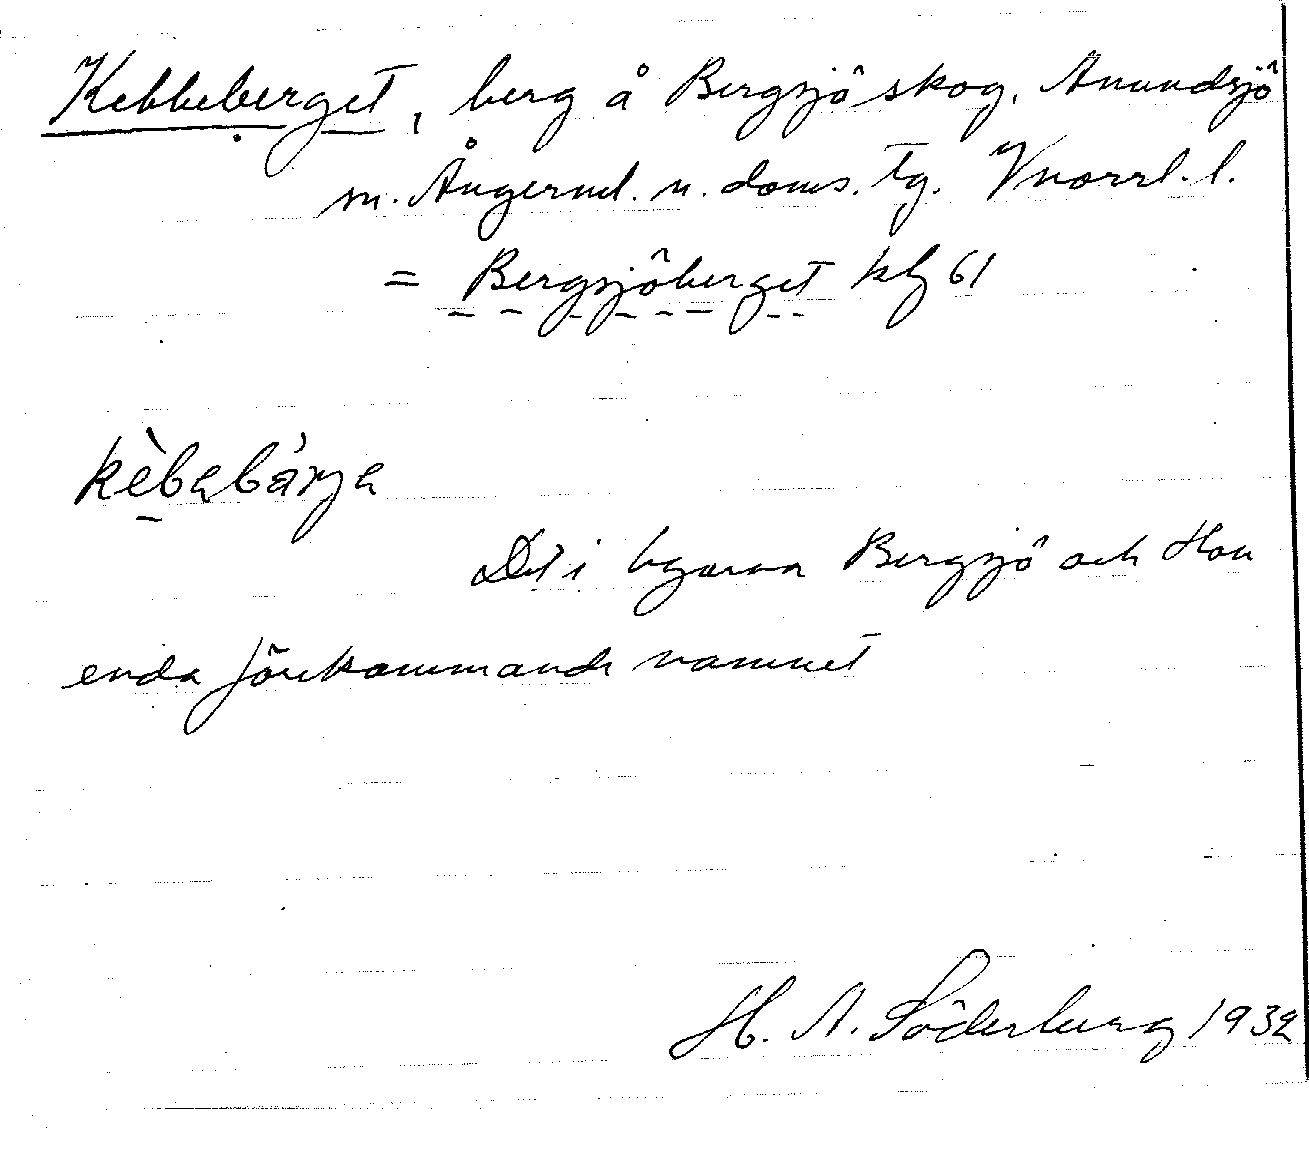 Kebbeberget, berg å Bergsjö skog, Anundsjö
sn. Ångerml. n. doms. tg. Vnorrl. l.
= Bergsjöberget kbl 61
kèbabárja
Det i byarna Bergsjö och Hou
enda förekommande namnet
H. A. Söderberg 1932